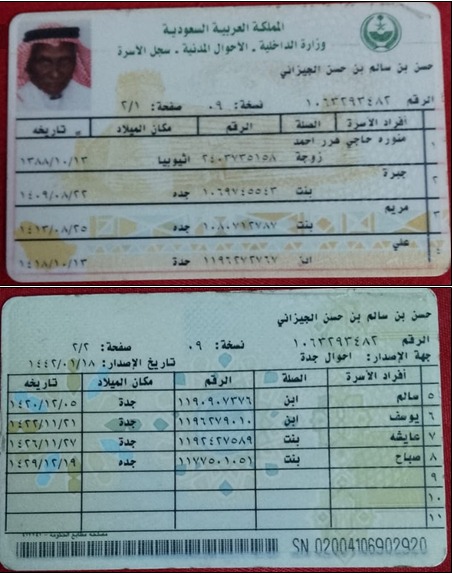 المملكة العربية السعودية
وزارة الداخلية - الأحوال المدنية - سجل الأسرة
حسن بن سالم بن حسن الجيزاني
الرقم ١٠٦٣٢٩٣٤٨٢ نسخة: ٠٩ صفحة: ٢/١
أفراد الأسرة الصلة الرقم مكان الميلاد تاريخه
١ منوره حاجي هرر احمد زوجة ٢٤٠٣٧٣٥١٥٨ اثيوبيا ١٣٨٨/١٠/١٣
٢ جبرة بنت ١٠٦٩٧٤٥٥٤٣ جده ١٤٠٩/٠٨/٢٢
٣ مريم بنت ١٠٨٠٧١٢٧٨٧ جدة ١٤١٣/٠٨/٢٥
٤ علي ابن ١١٩٦٢٧٢٧٦٧ جدة ١٤١٨/١٠/١٣
حسن بن سالم بن حسن الجيزاني
الرقم ١٠٦٣٢٩٣٤٨٢ نسخة: ٠٩ صفحة: ٢/٢
جهة الإصدار: احوال جدة تاريخ الإصدار: ١٤٤٢/٠١/١٨
أفراد الأسرة الصلة الرقم مكان الميلاد تاريخه
٥ سالم ابن ١١٩٠٩٠٧٣٧٦ جدة ١٤٢٠/١٢/٠٥
٦ يوسف ابن ١١٩٦٢٧٩٠١٠ جدة ١٤٢٢/١١/٢١
٧ عايشه بنت ١١٩٢٤٢٧٥٨٩ جدة ١٤٢٦/١١/٢٧
٨ صباح بنت ١١٧٧٥٠١٠٥١ جده ١٤٢٩/١٢/١٩
٩
١٠
١١
SN 02004106902920